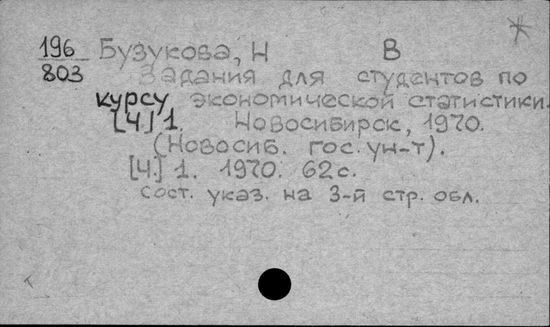 196 Бузукова, Н В
803 Задания для студентов по
курсу экономической статистики.
[Ч.] 1. Новосибирск, 1970.
(Новосиб. гос. ун-т).
[Ч.] 1. 1970. 62 с.
Сост. указ. на 3-й стр. обл.